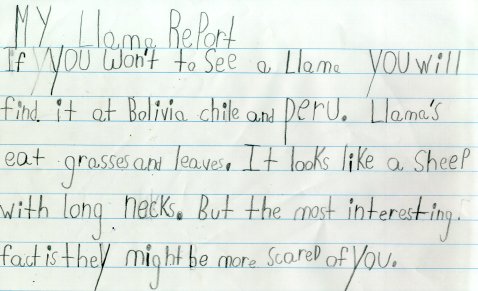 MY Llama RePort
If YOU Won't to See a Llama YOU will
find it at Bolivia chile and peru. Llama's
eat grasses and leaves. It looks like a SheeP
with long necks. But the most interesting.
fact is they might be more scareD of YOU.